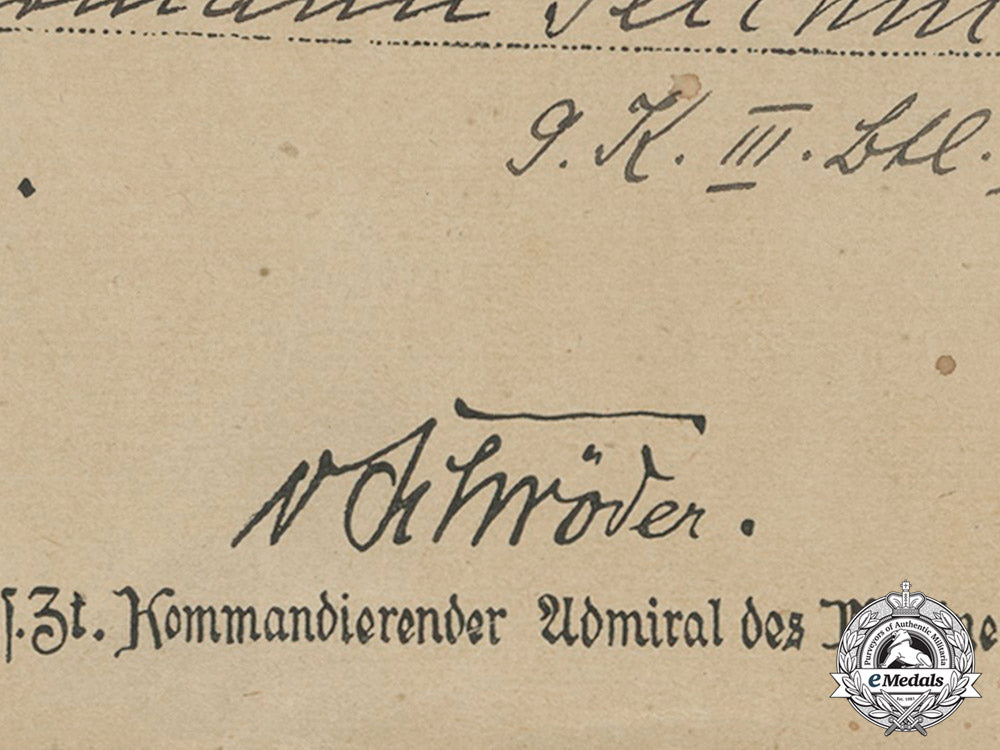 9. K. III. Btl.
v Schröder.
s. Zt. Kommandierender Admiral des
Purveyors of Authentic Militaria
eMedals
Est. 1987